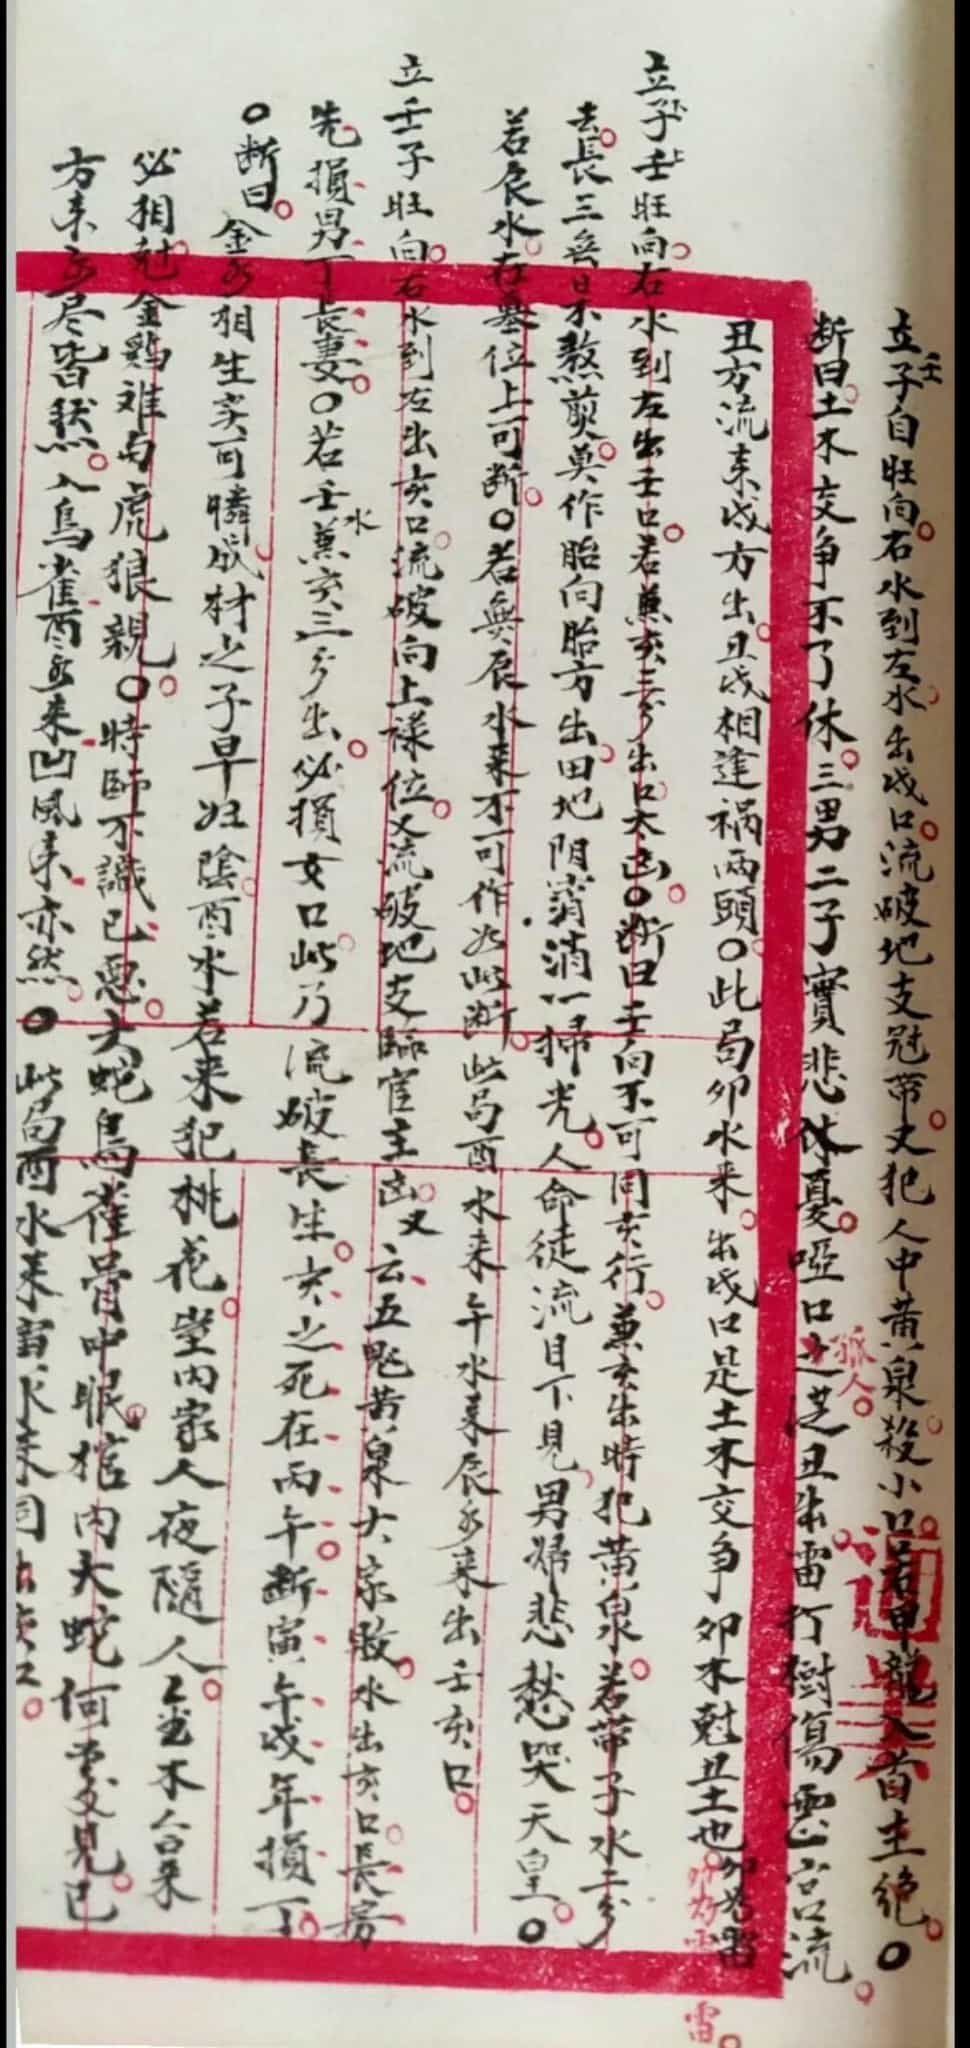 立子壬自旺向右水到左水出戌口流破地支冠帶又犯人中黃泉殺小口若甲龍入首主絕
断曰土木交爭不了休三男二子實悲休憂啞口之 丑出雷打樹傷 流
孤人
丑方流来戌方出丑戌相逢祸兩頭○此局卯水来出戌口是土木交争卯木尅丑土也卯為雷
雷
立子壬旺向右水到左出壬口若兼亥三分出口大凶○断曰壬向不可同亥行兼亥出時犯黃泉若帶子水二分
去長三房日不熬煎莫作胎向胎方出田地阴消一掃光人命徒流目下見男婦悲愁哭天皇○
若辰水在墓位上可断○若無辰水来不可作如此断此局酉水来午水来辰水来出壬亥口
立壬子旺向右水到左出亥口流破向上禄位又流破地支臨官主凶又云五鬼黃泉大家敗水出亥口長房
先損男丁長妻○若壬水兼亥三分出必損女口此乃流破長生亥之死在丙午断寅午戌年損丁
○断曰金水相生实可憐成材之子早妇陰酉水若来犯桃花堂内家人夜隨人金木合来
必相尅金鷄难与虎狼親○時師不識已惡大蛇鳥雀骨中眠棺内大蛇何處見巳
方来立尽皆然入鳥雀酉水来凹風来亦然○此局酉水来寅水来同